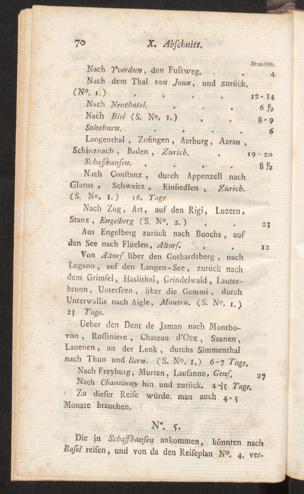 70 X. Abschnitt.
Stunden.
Nach Yverdun, den Fußweg, . . 4
Nach dem Thal von Joux, und zurück,
(No. 1.) . . . . . 12-14
Nach Neuchatel. . . . . 6 1/2
Nach Biel (S. No. 1.) . . . 8-9
Solothurn. . . . . . 6
Langenthal, Zofingen, Aarburg, Aarau,
Schinznach, Baden, Zürich. . 19-20
Schaffhausen. . . . . 8 1/2
Nach Constanz, durch Appenzell nach
Glarus, Schweiz, Einsiedlen, Zürich.
(S. No. 1.) 16. Tage
Nach Zug, Art, auf den Rigi, Luzern,
Stanz, Engelberg (S. No. 2.) . . 23
Aus Engelberg zurück nach Buochs, auf
den See nach Fluelen, Altorf. . . 12
Von Altorf über den Gothardsberg, nach
Lugano, auf den Langen-See, zurück nach
dem Grimsel, Haslithal, Grindelwald, Lauter-
brunn, Unterseen, über die Gemmi, durch
Unterwallis nach Aigle, Moutru. (S. No. 1.)
23 Tage.
Ueber den Dent de Jaman nach Montbo-
von, Rossiniere, Chateau d'Oex, Saanen,
Lauenen, an der Lenk, durchs Simmenthal
nach Thun und Bern. (S. No. 1.) 6-7 Tage.
Nach Freyburg, Murten, Lausanne, Genf, 27
Nach Chamouny hin und zurück. 4-5 Tage.
Zu dieser Reise würde man auch 4-5
Monate brauchen.
No. 5.
Die in Schaffhausen ankommen, könnten nach
Basel reisen, und von da den Reiseplan No. 4. ver-